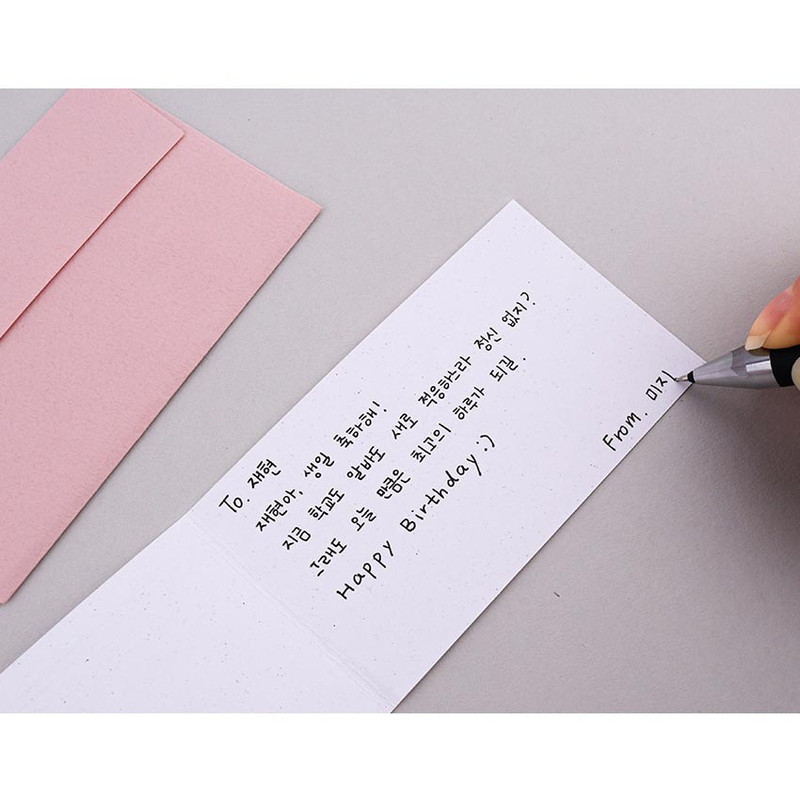 To. 재현
재현아, 생일 축하해!
지금 학교도 알바도 새로 적응하느라 정신 없지?
그래도 오늘 만큼은 최고의 하루가 되길.
Happy Birthday :)
From. 미지